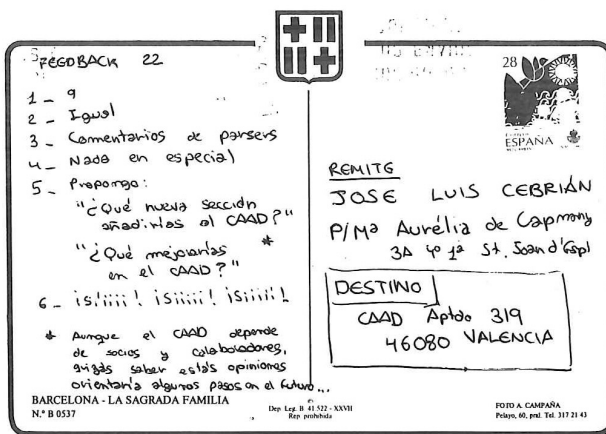 FEEDBACK 22
1 - 9
2 - Igual
3 - Comentarios de parsers
4 - Nada en especial
5 - Propongo:
"¿Qué nueva sección
añadirías al CAAD?"
"¿Qué mejorarías *
en el CAAD?"
6 - ¡Síiiii! ¡Siiiii! ¡Siiiii!
* Aunque el CAAD depende
de socios y colaboradores,
quizás saber estas opiniones
orientaría algunos pasos en el futuro...
BARCELONA - LA SAGRADA FAMILIA
N.º B 0537
Dep. Leg. B 41.522 - XXVII
Rep. prohibida
28
ESPAÑA
REMITE
JOSE LUIS CEBRIÁN
P/Mª Aurélia de Capmany
3A 4º 1ª St. Joan d'Espí
DESTINO
CAAD Aptdo 319
46080 VALENCIA
FOTO A. CAMPAÑA
Pelayo, 60, pral. Tel. 317 21 43